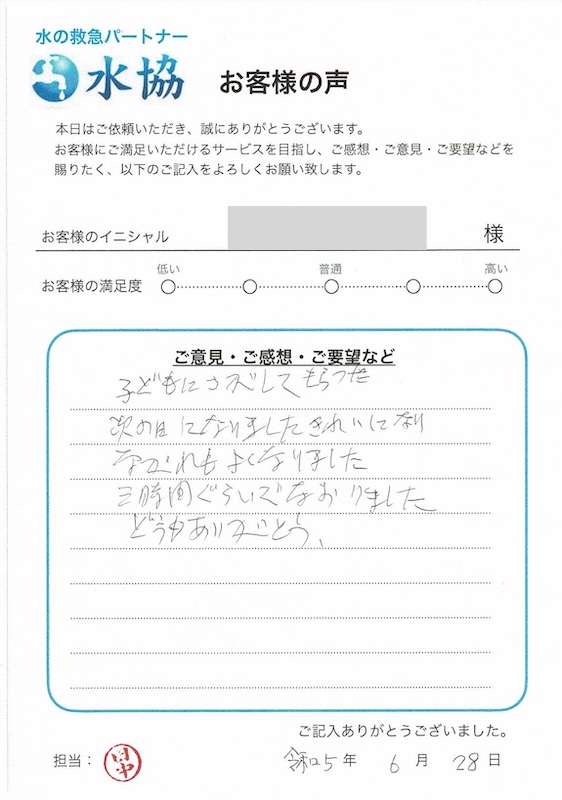 水の救急パートナー
水協 お客様の声
本日はご依頼いただき、誠にありがとうございます。
お客様にご満足いただけるサービスを目指し、ご感想・ご意見・ご要望などを
賜りたく、以下のご記入をよろしくお願い致します。
お客様のイニシャル 様
低い 普通 高い
お客様の満足度
ご意見・ご感想・ご要望など
子どもにさがしてもらった
次の日になりましたきれいになり
ながれもよくなりました
三時間ぐらいでなおりました
どうもありがとう、
ご記入ありがとうございました。
担当： 田中 令和5年 6月 28日